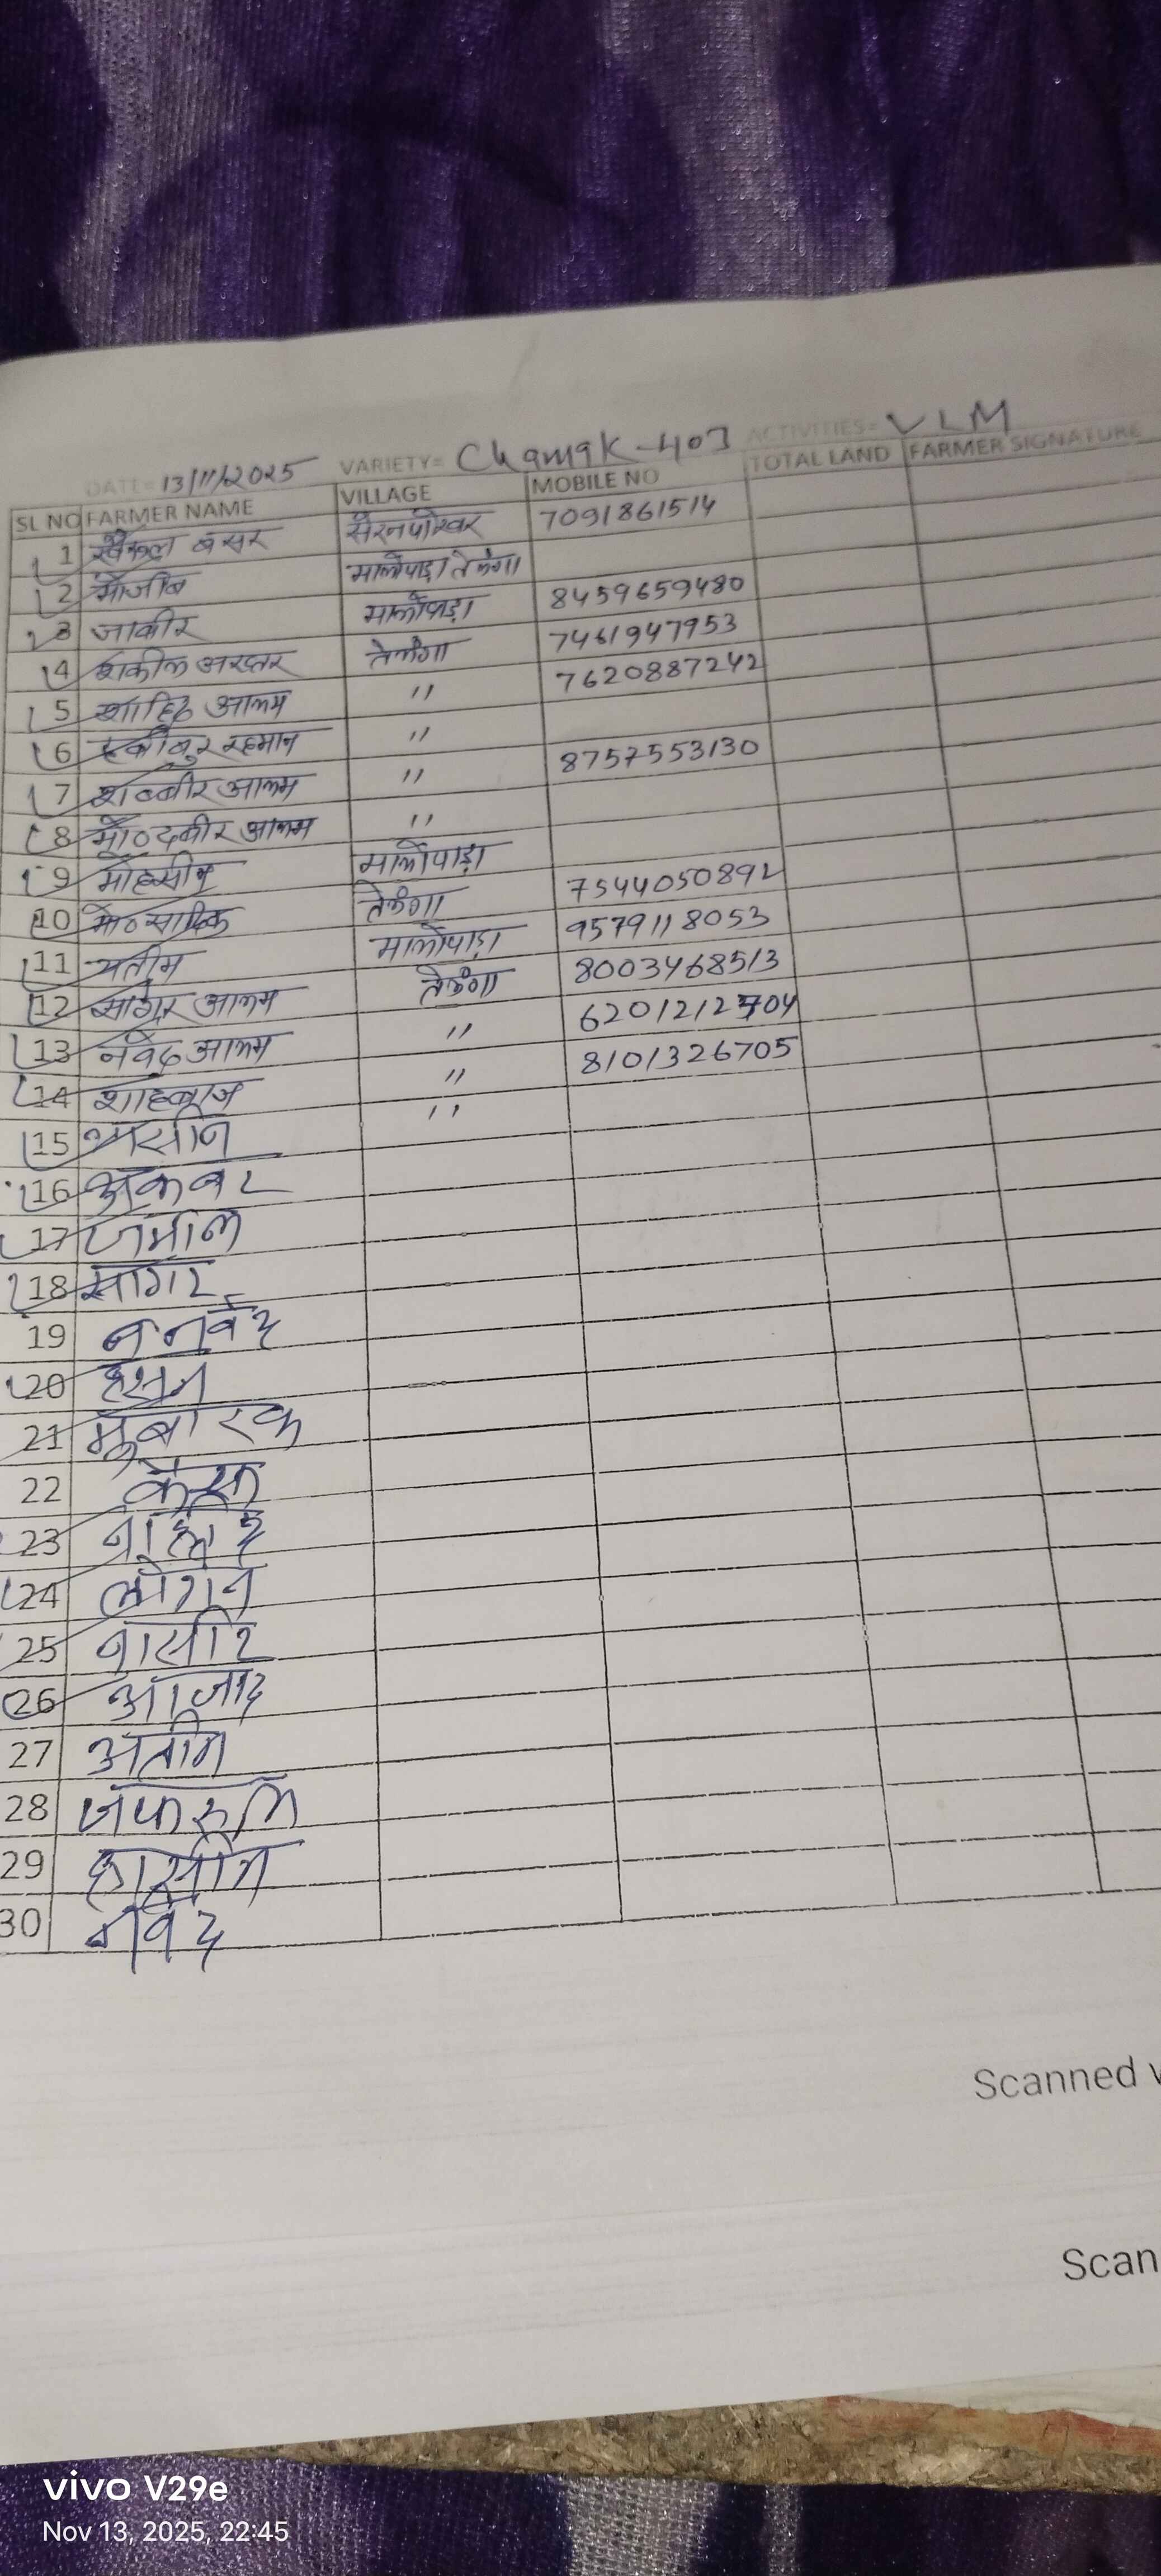 DATE= 13/11/2025 VARIETY= Chamak-403 ACTIVITIES= VLM
SL NO FARMER NAME VILLAGE MOBILE NO TOTAL LAND FARMER SIGNATURE
1 7091861514
2 मोजीब मालोपाड़ा तेलंगा
3 जाकीर मालोपाड़ा 8459659480
4 शकील अख्तर तेलंगा 7461947953
5 शाहिद आलम " 7620887242
6 हबीबुर रहमान "
7 शब्बीर आलम " 8757553130
8 मो० दबीर आलम "
9 मोहसीन मालोपाड़ा
10 मो० सादिक तेलंगा 7544050892
11 अतीम मालोपाड़ा 9579118053
12 सागर आलम तेलंगा 8003468513
13 नवेद आलम " 6201212704
14 शाहबाज " 8101326705
15 "
16 अकबर
17 जमील
18 सागर
19
20 हसन
21 मुबारक
22 कैसर
23
24
25 नासीर
26 आजाद
27 अतीम
28
29
30 नवेद
Scanned
Scan
vivo V29e
Nov 13, 2025, 22:45